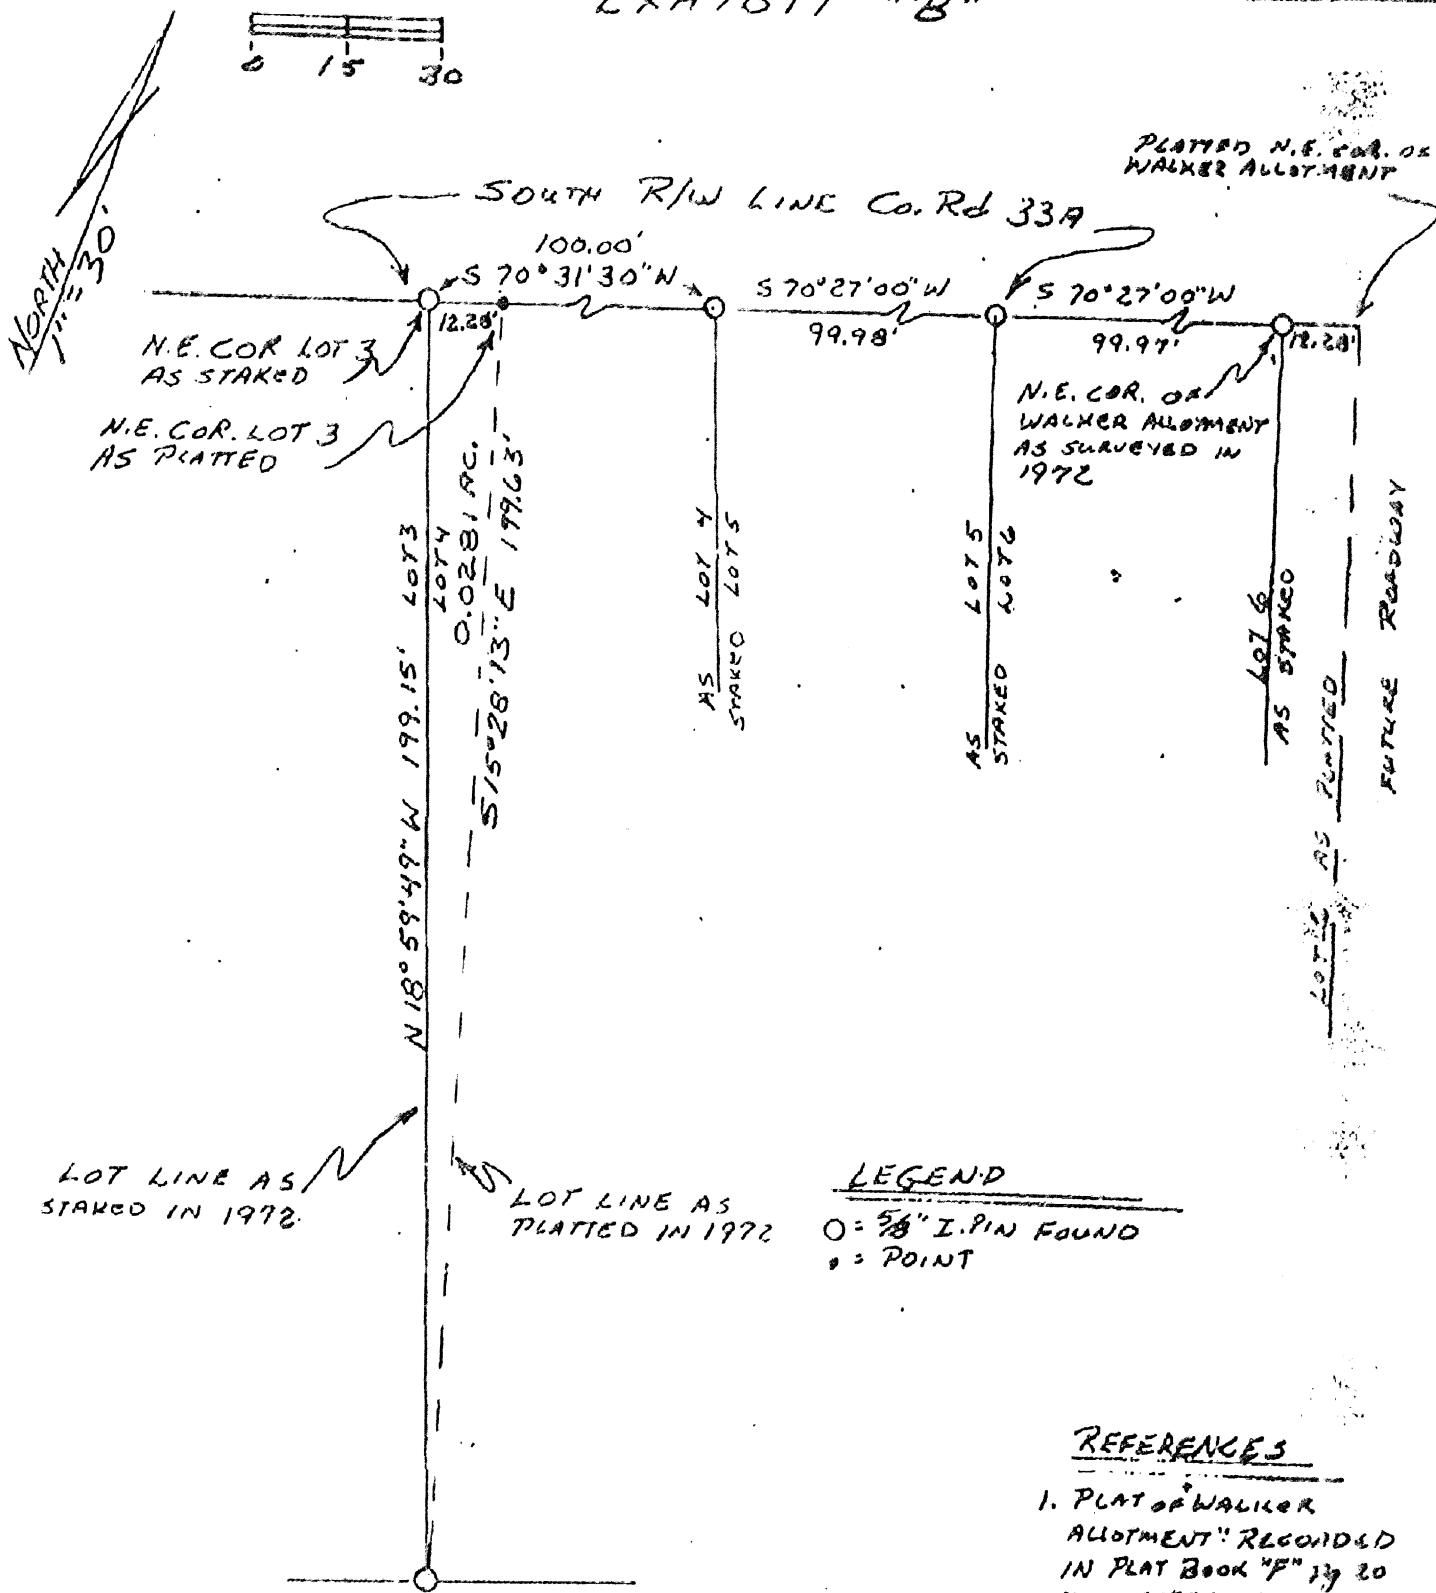 EXHIBIT "B"
0 15 30
NORTH
1"=30'
PLATTED N.E. COR. OF
WALKER ALLOTMENT
SOUTH R/W LINE Co. Rd 33A
100.00'
S 70°31'30" W
S 70°27'00" W
S 70°27'00" W
12.28'
99.98'
99.97'
12.28'
N.E. COR LOT 3
AS STAKED
N.E. COR. LOT 3
AS PLATTED
N.E. COR. OF
WALKER ALLOTMENT
AS SURVEYED IN
1972
N 18°59'49" W 199.15'
LOT 3
LOT 4
0.0281 AC.
S 15°28'13" E 199.63'
AS LOT 4
STAKED LOT 5
AS LOT 5
STAKED LOT 6
LOT 6
AS STAKED
LOT 6 AS PLATTED
FUTURE ROADWAY
LOT LINE AS
STAKED IN 1972
LOT LINE AS
PLATTED IN 1972
LEGEND
O = 5/8" I. PIN FOUND
• = POINT
REFERENCES
1. PLAT OF "WALKER
ALLOTMENT" RECORDED
IN PLAT BOOK "F" Pg 20